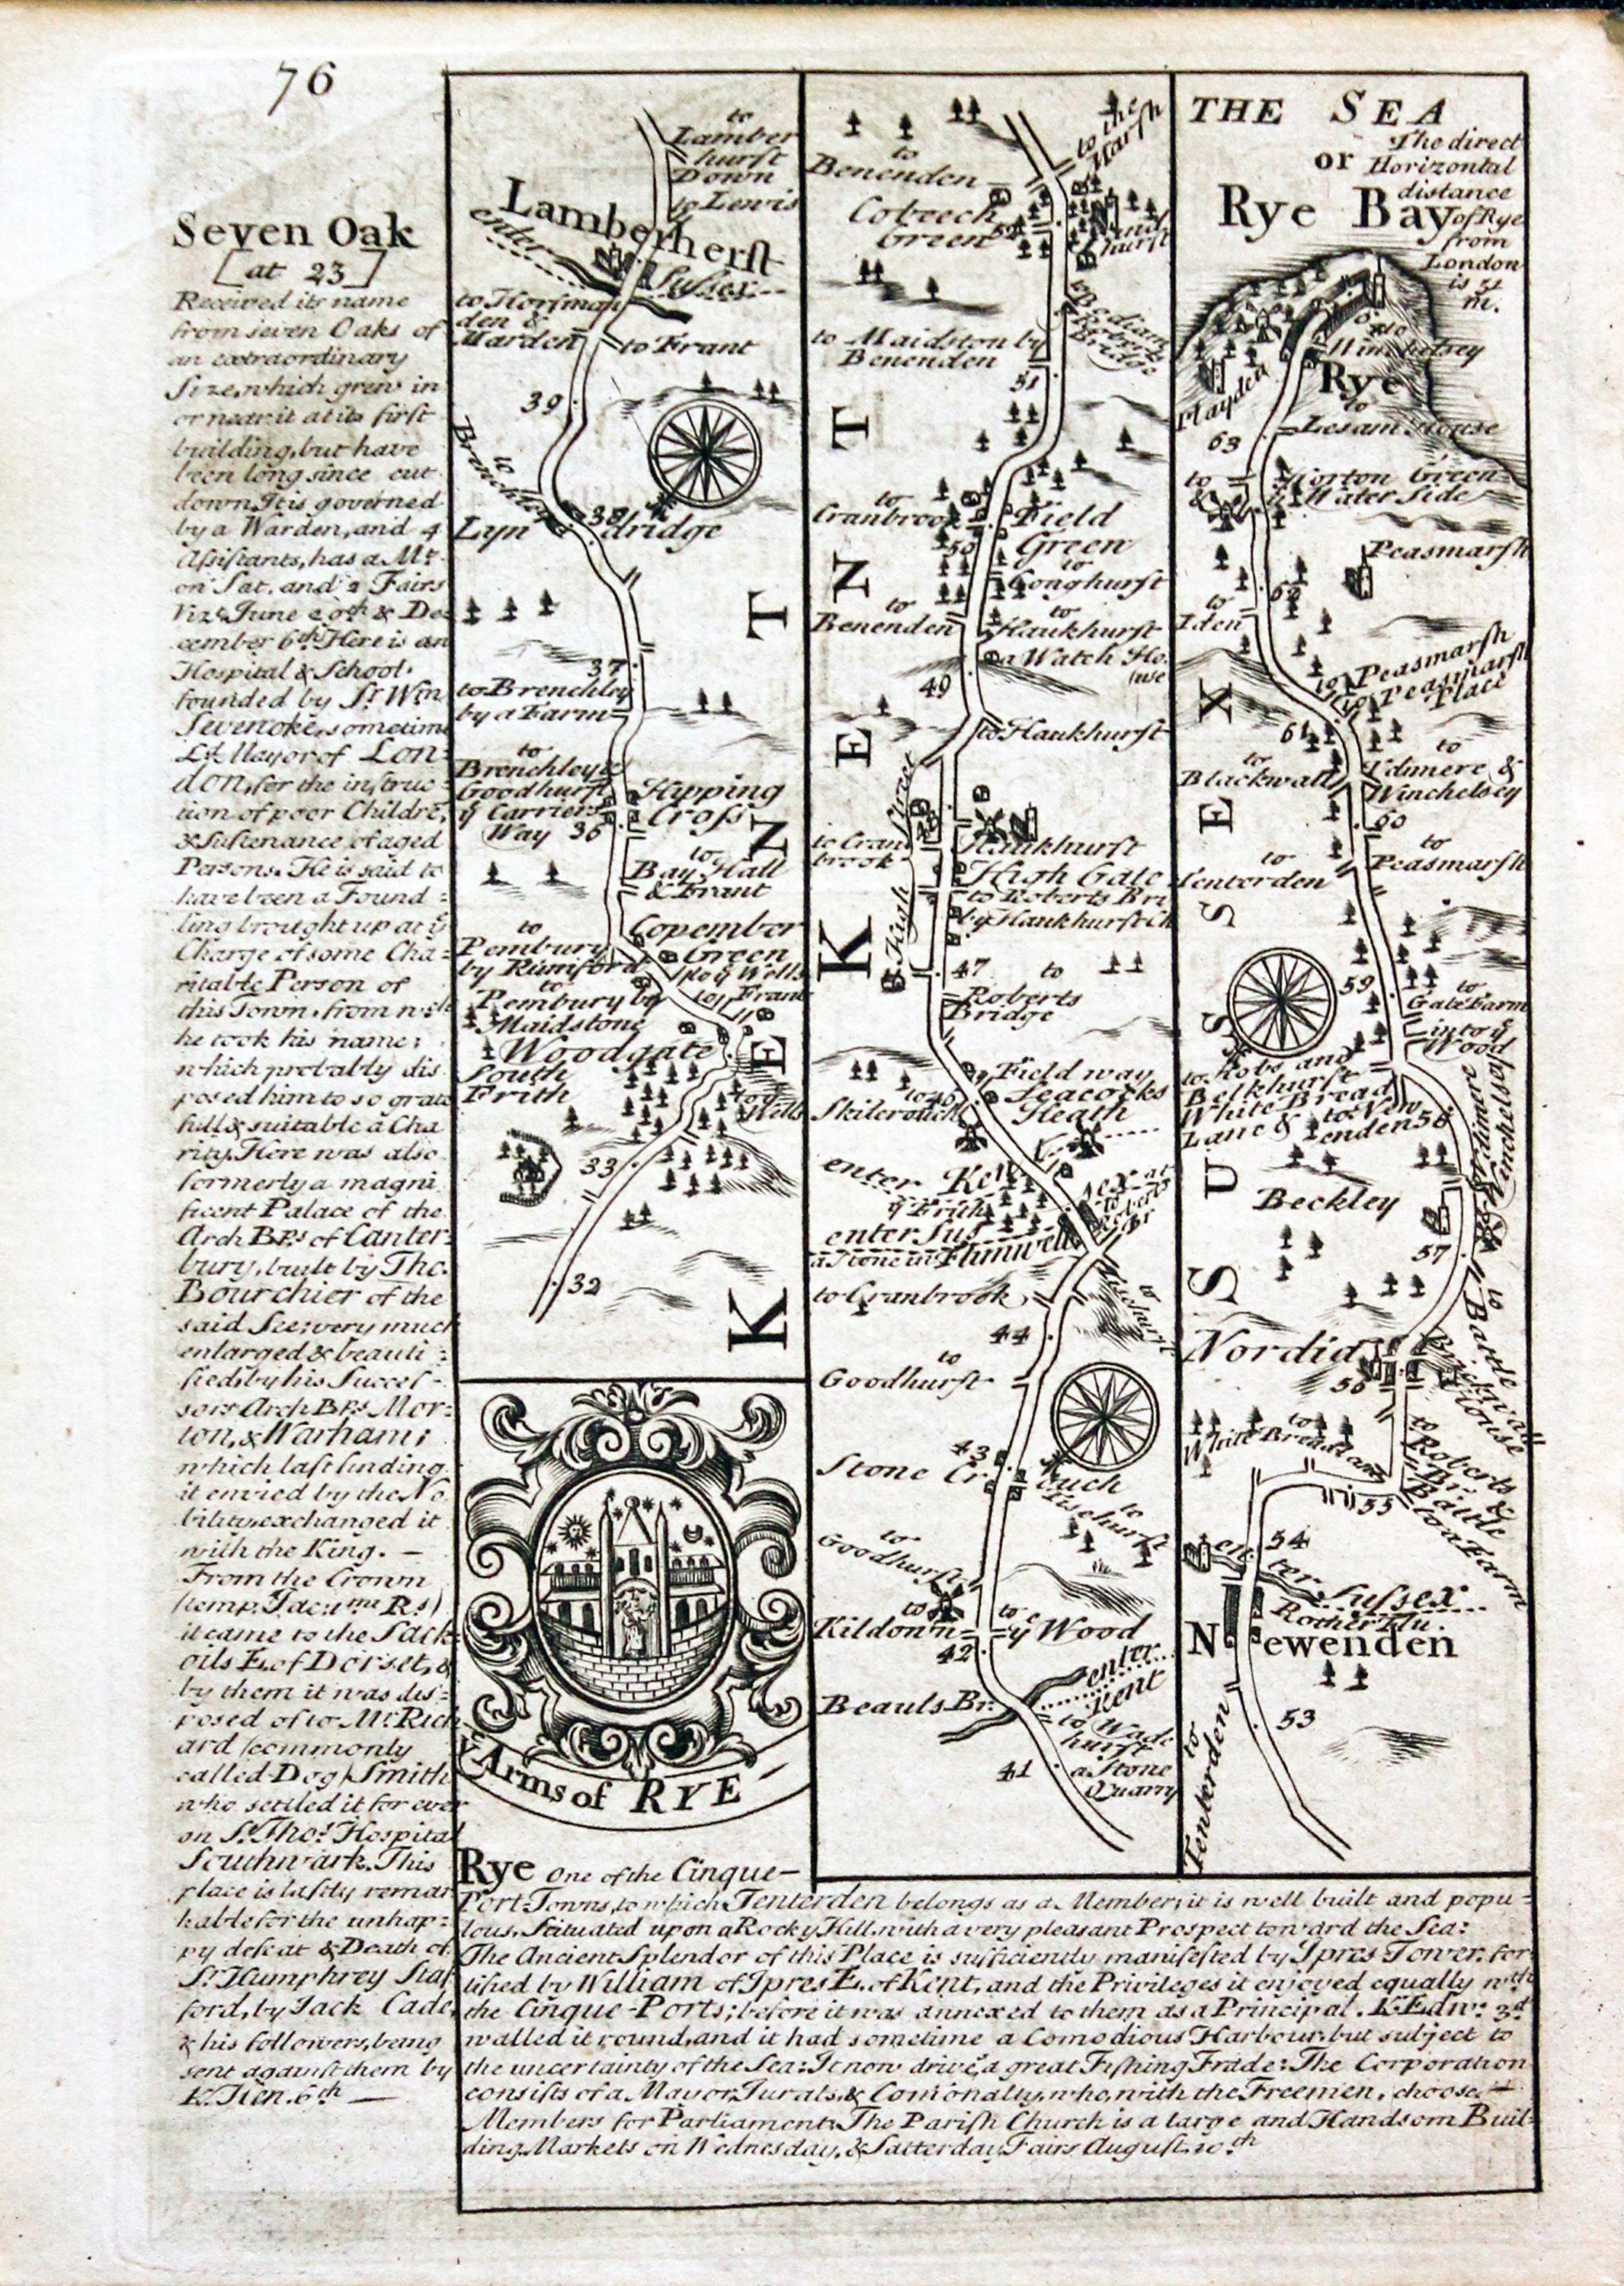 76
Seven Oak
[at 23]
Received its name
from seven Oaks of
an extraordinary
Size, which grew in
or near it at its first
building, but have
been long since cut
down. It is governed
by a Warden, and 4
Aſsiſtants, has a Mt.
on Sat. and 2 Fairs
Vizt. June 29th & De
cember 6th. Here is an
Hospital & School.
founded by Sr. Wm
Sevenoke, sometime
Ld. Mayor of Lon-
don, for the inſtruc-
tion of poor Childrē,
& Suſtenance of aged
Persons. He is said to
have been a Found-
ling brought up at ye
Charge of some Cha=
ritable Person of
this Town, from wch
he took his name;
which probably dis
posed him to so grate
full & suitable a Cha
rity. Here was also
formerly a magni
ficent Palace of the
Arch Bps. of Canter-
bury, built by Tho.
Bourchier of the
said See; very much
enlarged & beauti=
fied by his Succeſ-
sors Arch Bps. Mor=
ton, & Warham;
which laſt finding
it envied by the No
bility, exchanged it
with the King. —
From the Crown
(temp. Jac. 1mi Rs)
it came to the Sack
vils E. of Dorset, &
by them it was dis=
posed of to Mr. Rich
ard (commonly
called Dog) Smith
who settled it for ever
on St. Thos. Hospital
Southwark. This
place is laſtly remar
kable for the unhap-
py defeat & Death of
Sr. Humphrey Staf
ford, by Jack Cade,
& his followers, being
sent againſt them by
K. Hen. 6th —
to
Lamber
hurſt
Down
to Lewis
Lamberherſt
enter Suſsex
to Horſman
den &
Marden
to Frant
39
to
Brenchley
Lyn 38 dridge
37
to Brenchley
by a Farm
to
Brenchley &
Goodhurſt
ye Carriers
Way 36
Kipping
Croſs
to
Bay Hall
& Frant
to
Pembury
by Rumford
Copember
Green
to ye Wells
to Frant
to
Pembury by
Maidstone
Woodgate
South
Frith
to ye
Wells
33
32
KENT
ye Arms of RYE
to the
Marsh
to
Benenden
Cobeech
Green
52
Sand
hurſt
to Bodiam
& Roberts
Bridge
to Maidston by
Benenden
51
to
Cranbrook
Field
Green
50
to
Conghurſt
to
Benenden
to
Haukhurſt
a Watch Ho
use
49
to Haukhurſt
Street
to Cran
brook
Haukhurſt
High Gate
to Roberts Bri
by Haukhurſt Ch
High
47
to
Roberts
Bridge
Field way
Seacocks
Heath
to 46
enter Ken
ye Frith
enter Suſ
sex at
a Stone in Flimwell
to
Roberts
Br
to Cranbrook
to
Ticehurſt
44
to
Goodhurſt
43
Stone Cr
uch
to
Ticehurſt
to
Goodhurſt
to
Kildown
to
ye Wood
42
enter
Kent
Beauls Br.
to Wade
hurſt
41
a Stone
Quarry
KENT
THE SEA
or
Rye Bay
The direct
Horizontal
distance
of Rye
from
London
is 51
m.
to
Winchelsey
Rye
Playden
to
Lesam House
63
to
&
Horton Green
Water Side
Peasmarſh
62
to
Iden
to Peasmarſh
to Peasmarſh
Place
61
to
Blackwall
to
Udimere &
Winchelsey
60
to
Tenterden
to
Peasmarſh
59
to
Gate Farm
into ye
Wood
to Hobs and
Belkhurſt
White Bread
Lane & to New
enden 58
to Udimore
& Winchelsey
Beckley
57
to
Battle
Nordiam
56
Brickwall
House
to
White Bread Lane
to
Roberts
Br. &
Battle
55
to a Farm
54
enter Suſsex
Rother Flu.
Newenden
53
to
Tenterden
SUSSEX
Rye One of the Cinque-
Port-Towns, to which Tenterden belongs as a Member; it is well built and popu=
lous, Scituated upon a Rocky Hill, with a very pleasant Prospect toward the Sea:
The Ancient Splendor of this Place is sufficiently manifeſted by Ipres Tower, for
tified by William of Ipres E. of Kent, and the Privileges it enjoyed equally with
the Cinque-Ports; before it was annexed to them as a Principal. K. Edw: 3d
walled it round, and it had sometime a Comodious Harbour, but subject to
the uncertainty of the Sea: It now drives a great Fiſhing Trade: The Corporation
consiſts of a Mayor, Jurats, & Comonalty, who, with the Freemen, choose, —
Members for Parliament. The Pariſh Church is a large and Handsom Buil-
ding, Markets on Wednesday, & Satterday, Fairs Auguſt 10th